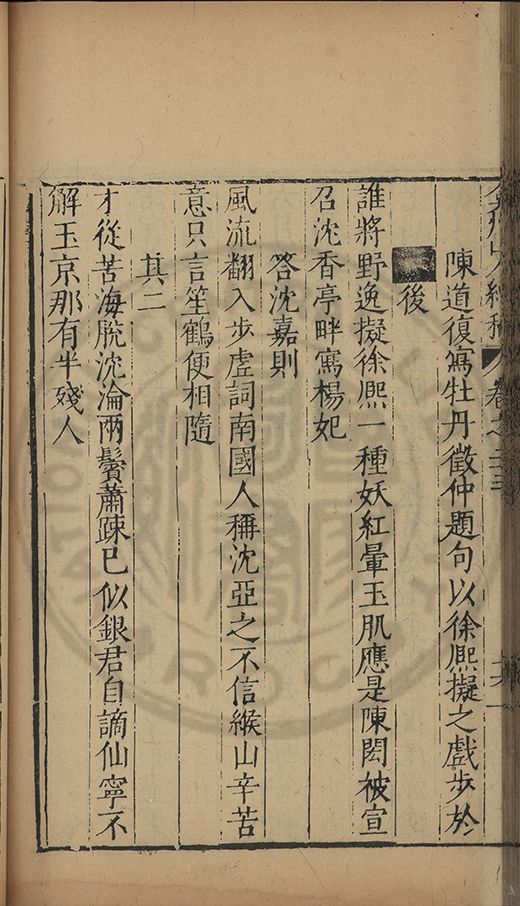 弇州山人續稿 卷之二十三
陳道復寫牡丹徵仲題句以徐熈擬之戲步於
後
誰將野逸擬徐熈一種妖紅暈玉肌應是陳閎被宣
召沈香亭畔寫楊妃
答沈嘉則
風流翻入步虛詞南國人稱沈亞之不信緱山辛苦
意只言笙鶴便相隨
其二
才從苦海脫沈淪兩鬢蕭踈已似銀君自謫仙寧不
解玉京那有半殘人